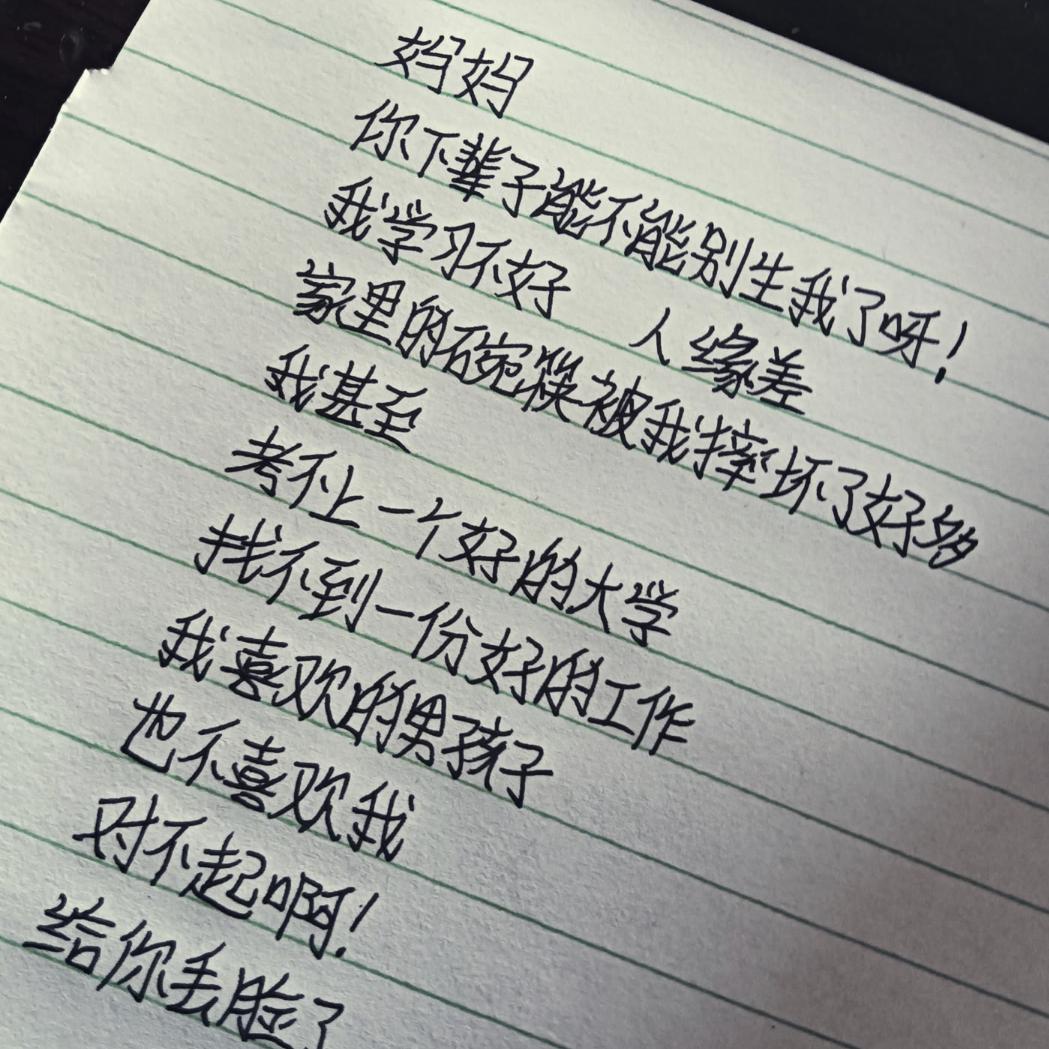 妈妈
你下辈子能不能别生我了呀！
我学习不好 人缘差
家里的碗筷被我摔坏了好多
我甚至
考不上一个好的大学
找不到一份好的工作
我喜欢的男孩子
也不喜欢我
对不起啊！
给你丢脸了